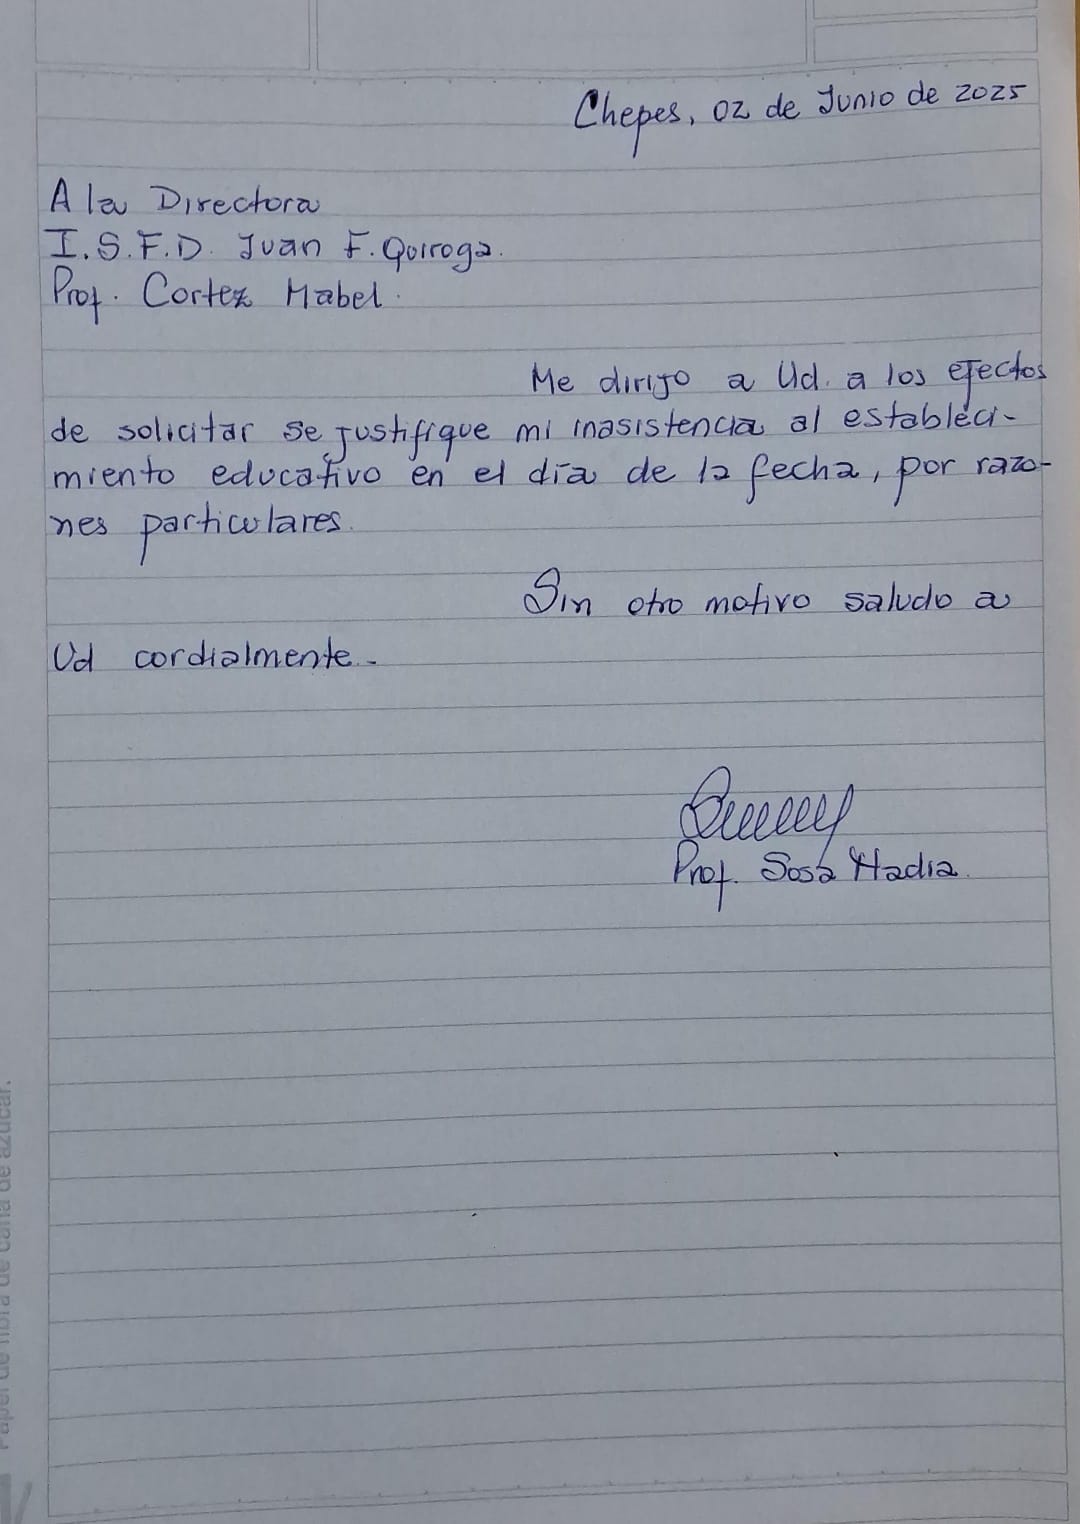 Chepes, 02 de Junio de 2025
A la Directora
I.S.F.D. Juan F. Quiroga.
Prof. Cortez Mabel.
Me dirijo a Ud. a los efectos
de solicitar se justifique mi inasistencia al estableci-
miento educativo en el día de la fecha, por razo-
nes particulares.
Sin otro motivo saludo a
Ud cordialmente.-
Prof. Sosa Nadia.
Papel de fibra de caña de azúcar.